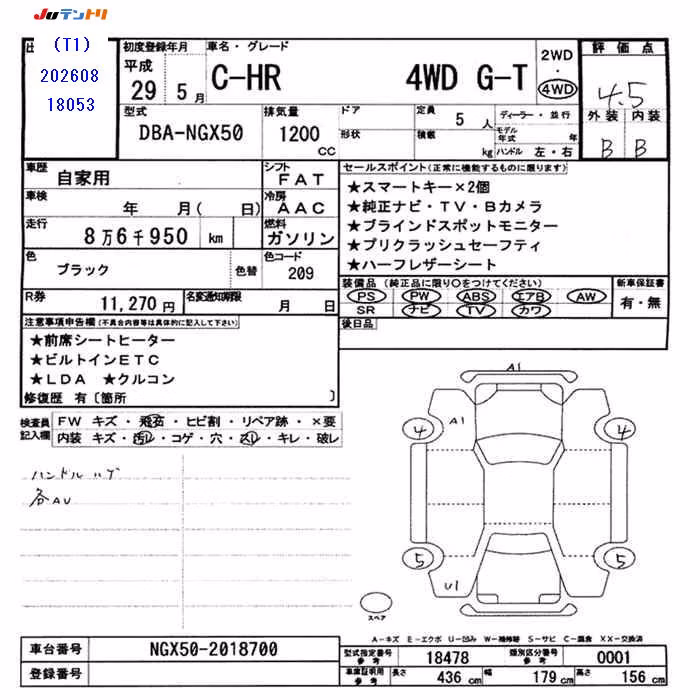 JUテントリ
(T1)
202608
18053
初度登録年月
平成
29 5 月
車名・グレード
C-HR 4WD G-T
2WD
・
4WD
評価点
4.5
外装 内装
B B
型式
DBA-NGX50
排気量
1200
CC
ドア
形状
定員 5 人
積載 kg
ディーラー・並行
モデル年式 年
ハンドル 左・右
車歴
自家用
シフト
FAT
車検
年 月( 日)
冷房
AAC
走行
8万6千950 km
燃料
ガソリン
色
ブラック
色替
色コード
209
R券
11,270円
名変通知期限
月 日
セールスポイント(正常に機能するものに限ります)
★スマートキー×2個
★純正ナビ・TV・Bカメラ
★ブラインドスポットモニター
★プリクラッシュセーフティ
★ハーフレザーシート
装備品 (純正品に限り○をつけてください)
PS PW ABS エアB AW
SR ナビ TV カワ
新車保証書
有・無
後日品
注意事項申告欄(不具合内容等は具体的に記入して下さい)
★前席シートヒーター
★ビルトインETC
★LDA ★クルコン
修復歴 有〔箇所 〕
検査員
記入欄
FW キズ・飛石・ヒビ割・リペア跡・×要
内装 キズ・汚レ・コゲ・穴・スレ・キレ・破レ
ハンドルハゲ
各AU
A1
A1
4 4
5 5
U1
スペア
A-キズ E-エクボ U-凹み W-補修跡 S-サビ C-腐食 XX-交換済
車台番号
NGX50-2018700
登録番号
型式指定番号
参考
18478
類別区分番号
参考
0001
車庫証明用
参考
長さ 436 cm 幅 179 cm 高さ 156 cm